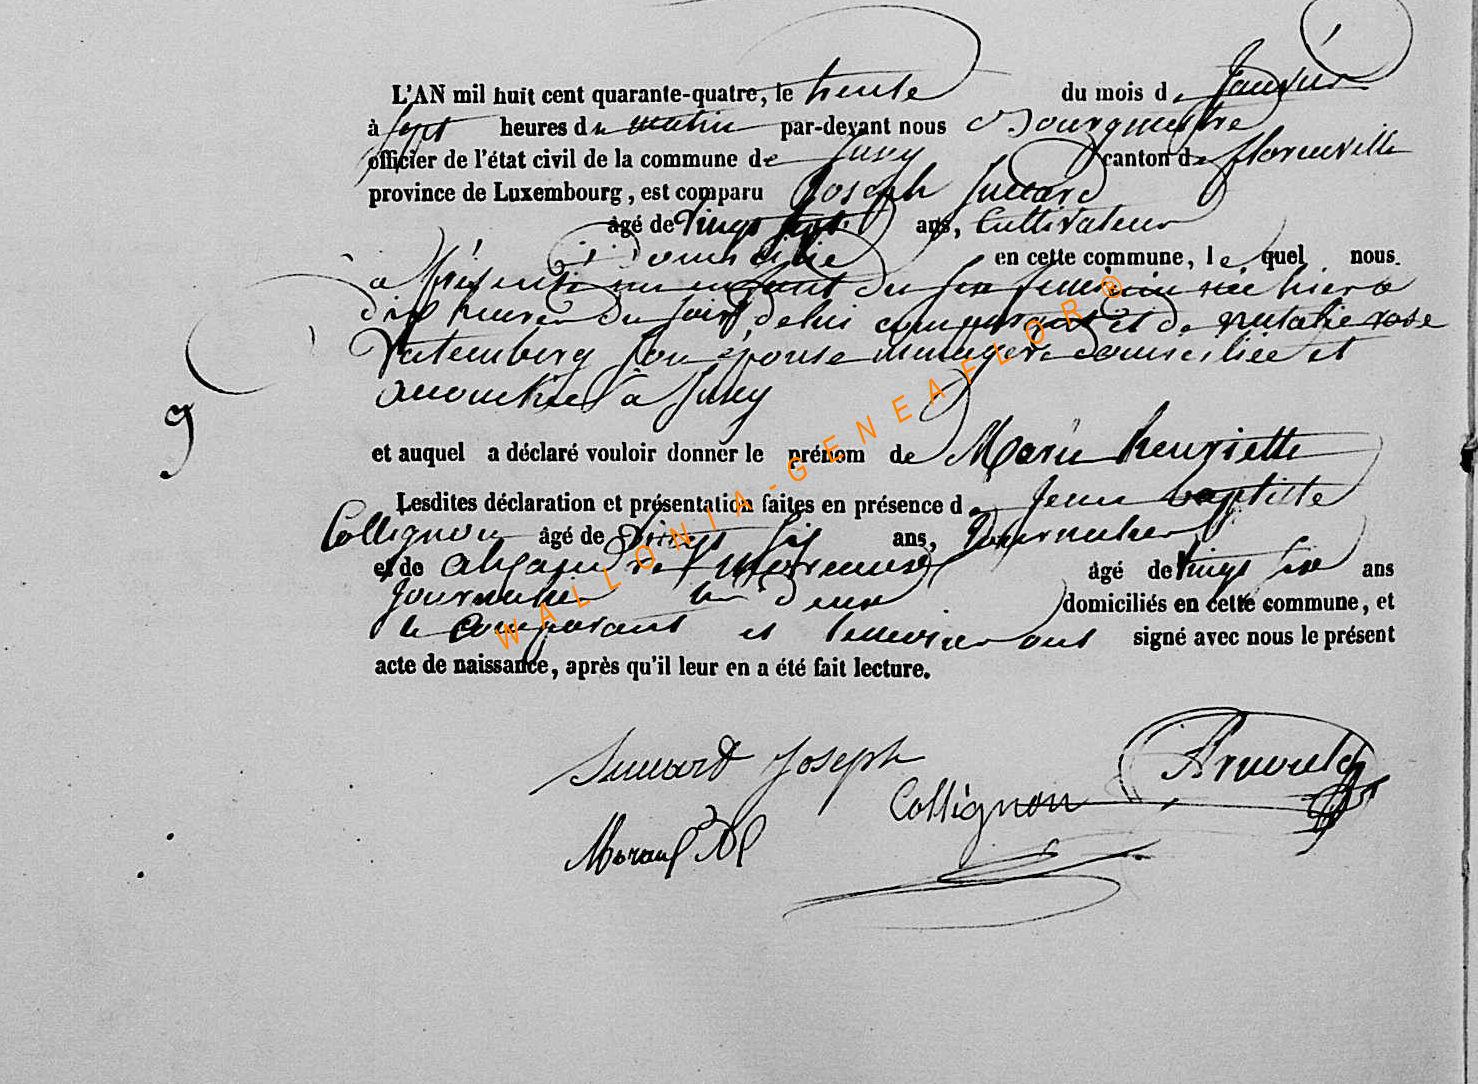 L'AN mil huit cent quarante-quatre, le trente du mois de Janvier
à sept heures du matin par-devant nous Bourgmestre
officier de l'état civil de la commune de canton de florenville
province de Luxembourg, est comparu Joseph
âgé de vingt sept ans, Cultivateur
Domicilié en cette commune, lequel nous
a présenté un enfant du sex feminin née hier a
dix heures du soir, de lui comparant et de natalie rose
son épouse menagere domiciliée et
à
9
et auquel a déclaré vouloir donner le prénom de Marie henriette
Lesdites déclaration et présentation faites en présence de Jean baptiste
Collignon âgé de vingt ans, Journalier
et de âgé de vingt six ans
Journalier les deux domiciliés en cette commune, et
le comparant et temoins ont signé avec nous le présent
acte de naissance, après qu'il leur en a été fait lecture.
Joseph
Collignon
WALLONIA-GENEAFLOR®